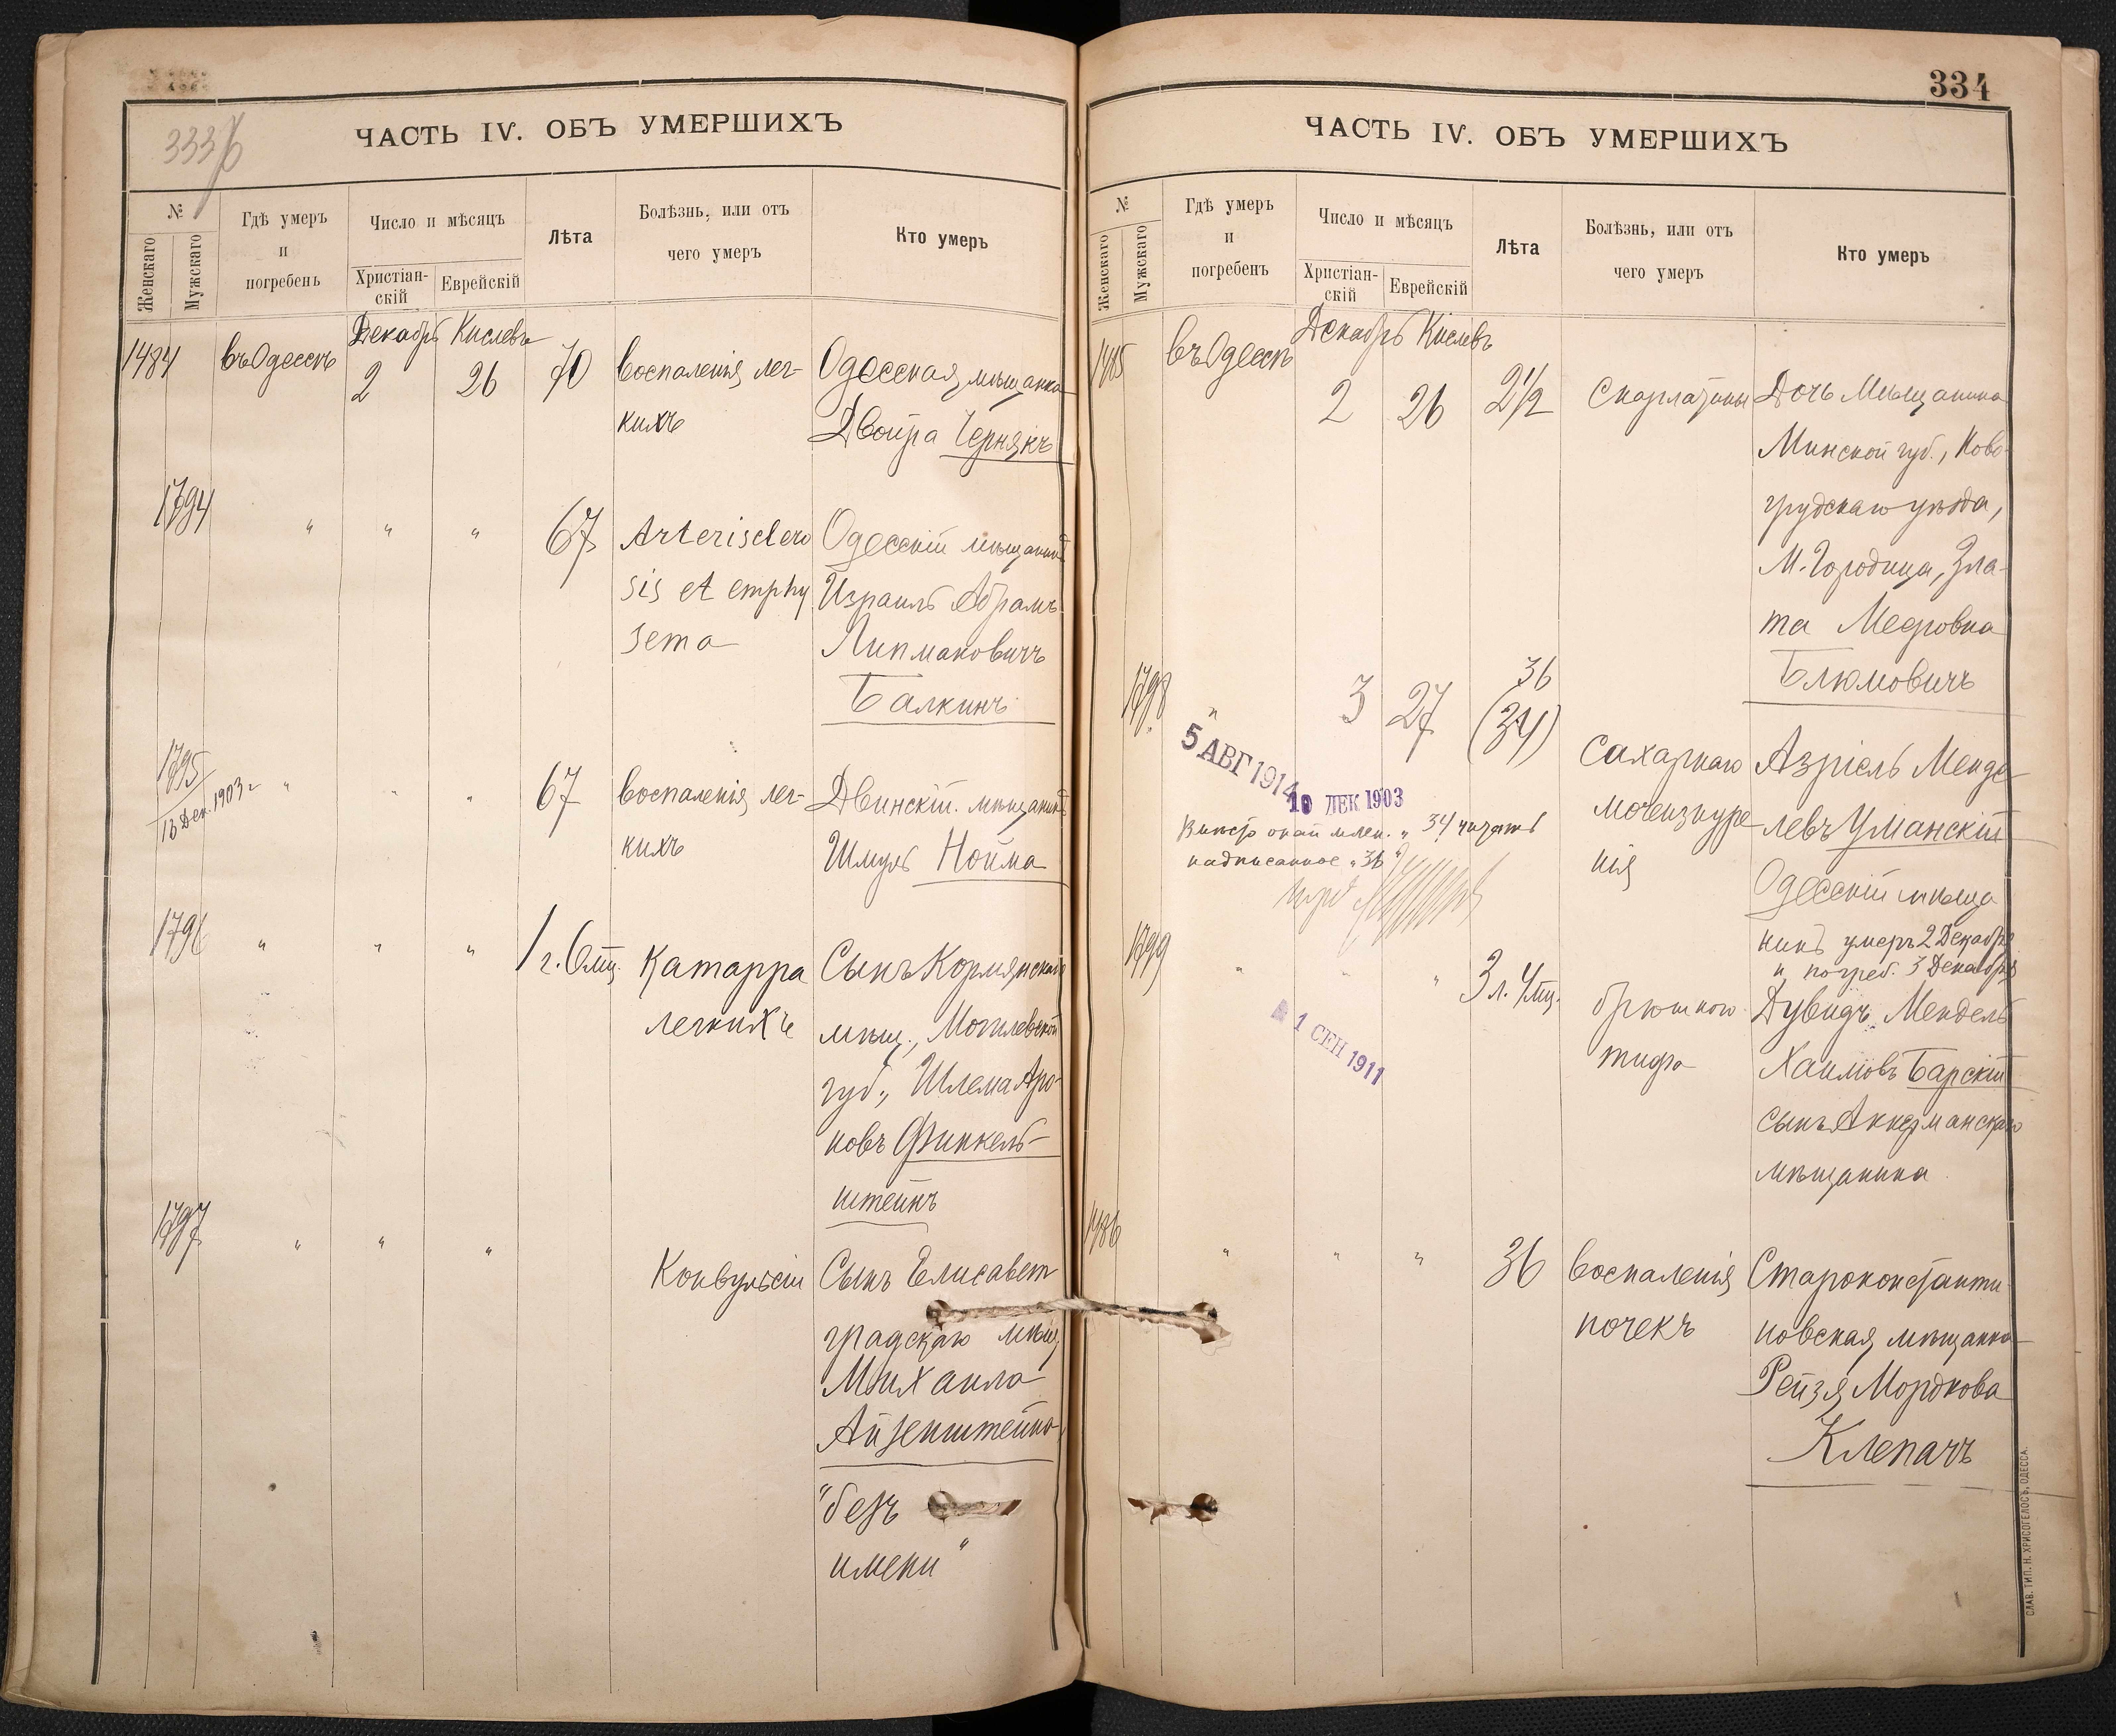 333
ЧАСТЬ IV. ОБЪ УМЕРШИХЪ
№
Женскаго
Мужскаго
Гдѣ умеръ
и
погребенъ
Число и мѣсяцъ
Христіан-
скій
Еврейскій
Лѣта
Болѣзнь, или отъ
чего умеръ
Кто умеръ
Декабрь Кислевъ
1484 въ Одессѣ 2 26 70 воспаленія лег- Одесская мѣщанка
кихъ Двойра Чернякъ
1794 " " " 67 Arterisclero Одесскій мѣщанинъ
sis et emphy Израиль Абрамъ
sema Липмановичъ
Балкинъ
1795 " " " 67 воспаленія лег- Двинскій мѣщанинъ
13 Дек. 1903 г кихъ Шмуль Нойма
1796 " " " 1 г. 6 мц. Катарра Сынъ Кормянскаго
легкихъ мѣщ., Могилевской
губ., Шлема Аро-
новъ Финкель-
штейнъ
1797 " " " Конвульсіи Сынъ Елисавет
градскаго мѣщ
Михаила
Айзенштейна
"безъ
имени"
334
ЧАСТЬ IV. ОБЪ УМЕРШИХЪ
№
Женскаго
Мужскаго
Гдѣ умеръ
и
погребенъ
Число и мѣсяцъ
Христіан-
скій
Еврейскій
Лѣта
Болѣзнь, или отъ
чего умеръ
Кто умеръ
Декабрь Кислевъ
1485 въ Одессѣ 2 26 2 1/2 Скарлатины Дочь Мѣщанина
Минской губ., Ново-
грудскаго уѣзда,
М. Городища, Зла-
та Мееровна
Блюмовичъ
1798 " 3 27 36
(34) Сахарнаго Азріель Менде
мочеизнуре левъ Уманскій
нія Одесскій мѣща
нинъ умеръ 2 Декабря
и погреб. 3 Декабря
5 АВГ 1914
10 ДЕК 1903
"34 читать
надписанное "36"
1799 " " " 3 л. 4 мц. брюшного Дувидъ Мендель
тифа Хаимовъ Барскій
сынъ Аккерманскаго
мѣщанина
1 СЕН 1911
1486 " " " 36 воспаленія Староконстанти
почекъ новская мѣщанка
Рейзя Мордкова
Клепачъ
СЛАВ. ТИП. Н. ХРИСОГЕЛОСЪ, ОДЕССА.